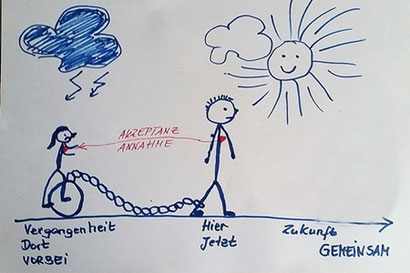 AKZEPTANZ
ANNAHME
Vergangenheit
Dort
VORBEI
Hier
Jetzt
Zukunft
GEMEINSAM